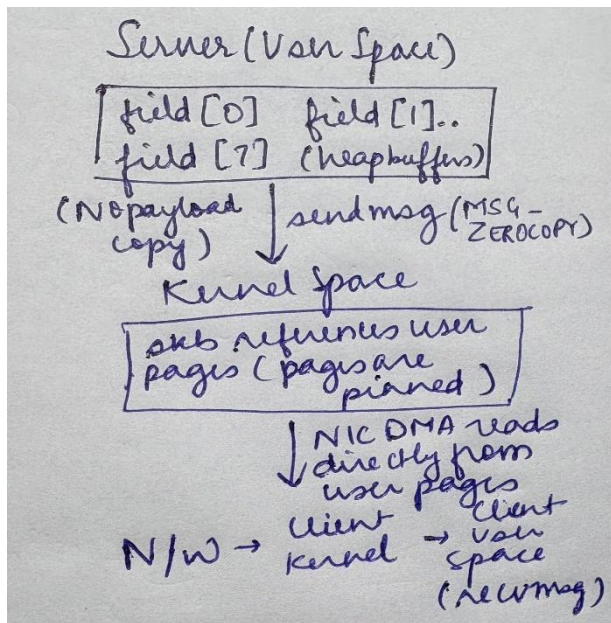 Server (User Space)
field [0] field [1]..
field [7] (heapbuffers)
(No payload copy)
sendmsg (MSG_ZEROCOPY)
Kernel Space
skb references user
pages (pages are
pinned)
NIC DMA reads
directly from
user pages
N/W → Client Kernel → Client User Space
(recvmsg)